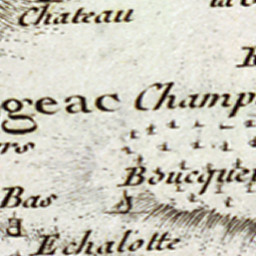 Chateau
geac Champ
rs
Boucquer
Bas
Echalotte